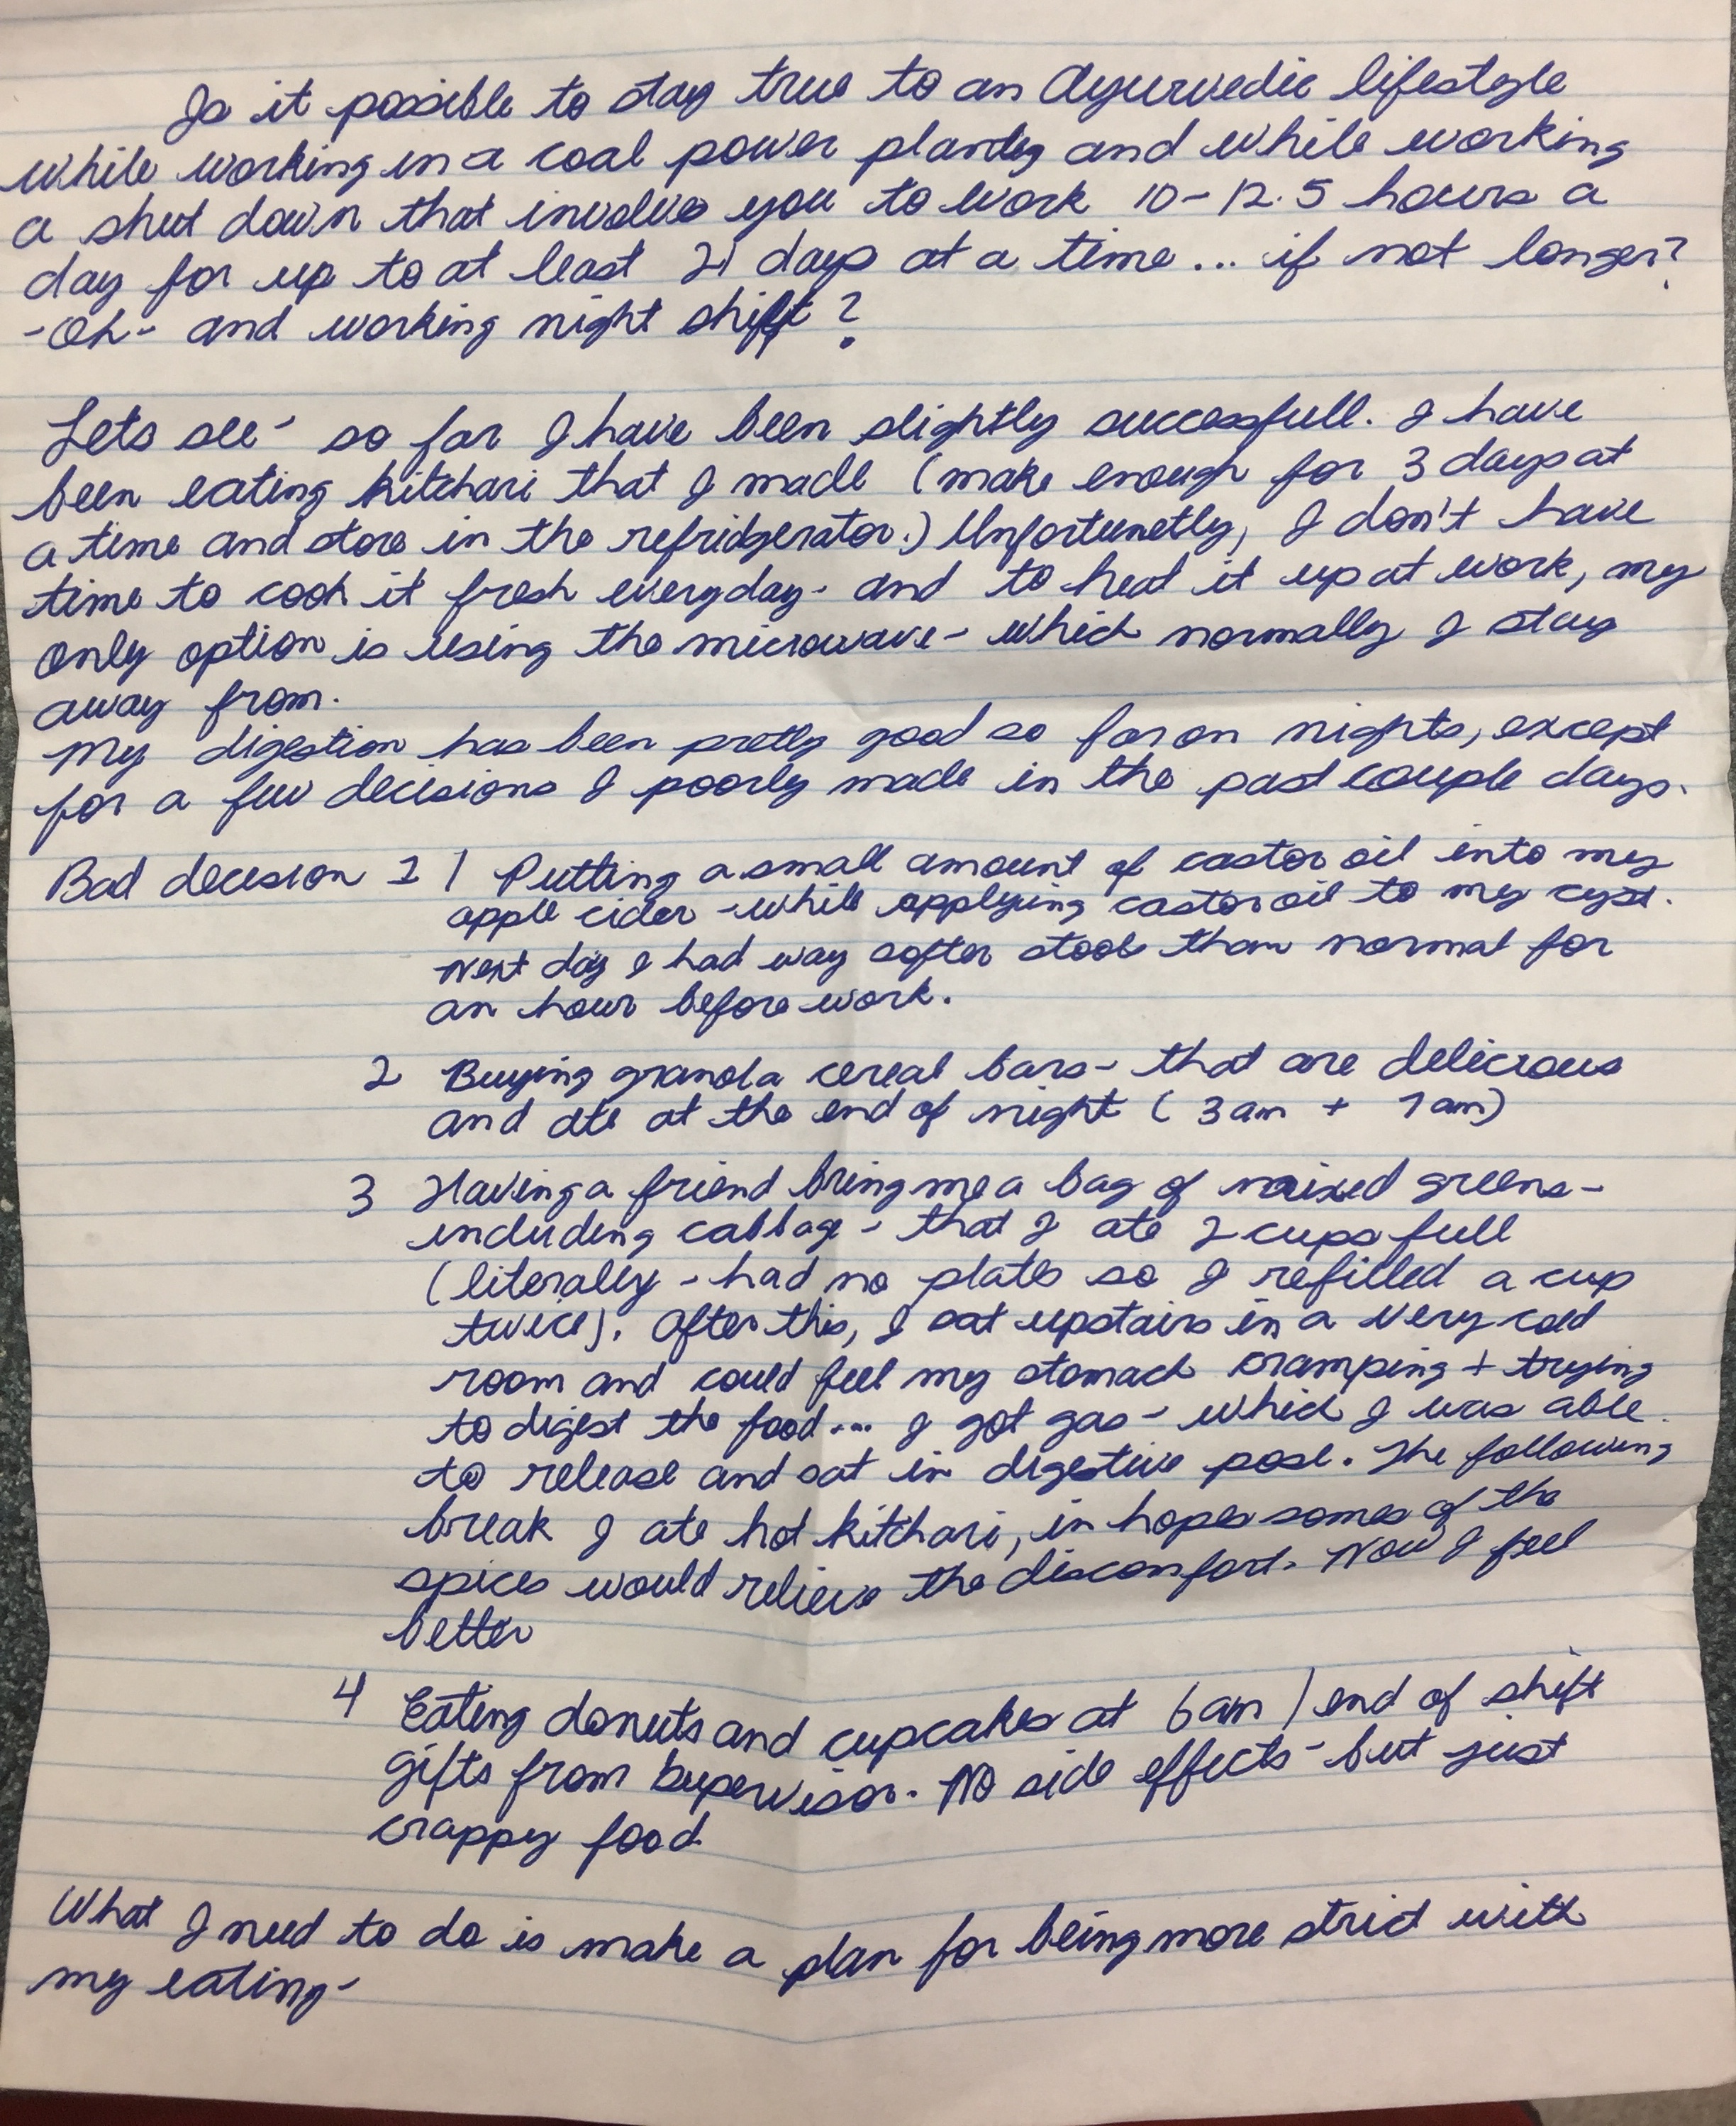 Is it possible to stay true to an Ayurvedic lifestyle
while working in a coal power and while working
a shut down that involves you to work 10-12.5 hours a
day for up to at least 21 days at a time... if not longer?
-Oh- and working night shift?
Lets see- so far I have been slightly successfull. I have
been eating kitchari that I made (make enough for 3 days at
a time and store in the refridgerator.) Unfortunetly, I don't have
time to cook it fresh everyday- and to heat it up at work, my
only option is using the microwave- which normally I stay
away from.
My digestion has been pretty good so far on nights, except
for a few decisions I poorly made in the past couple days.
Bad decision 1 | Putting a small amount of castor oil into my
apple cider -while applying castor oil to my cyst.
Next day I had way softer stools than normal for
an hour before work.
2 Buying granola cereal bars- that are delicious
and ate at the end of night (3am + 1am)
3 Having a friend bring me a bag of mixed greens-
including cabbage- that I ate 2 cups full
(literally - had no plates so I refilled a cup
twice). After this, I sat upstairs in a very cold
room and could feel my stomach cramping + trying
to digest the food... I got gas- which I was able
to release and sat in digestive pose. The following
break I ate hot kitchari, in hopes somes of the
spices would relieve the discomfort. Now I feel
better
4 Eating donuts and cupcakes at 6am / end of shift
gifts from supervisor. No side effects- but just
crappy food
What I need to do is make a plan for being more strict with
my eating-